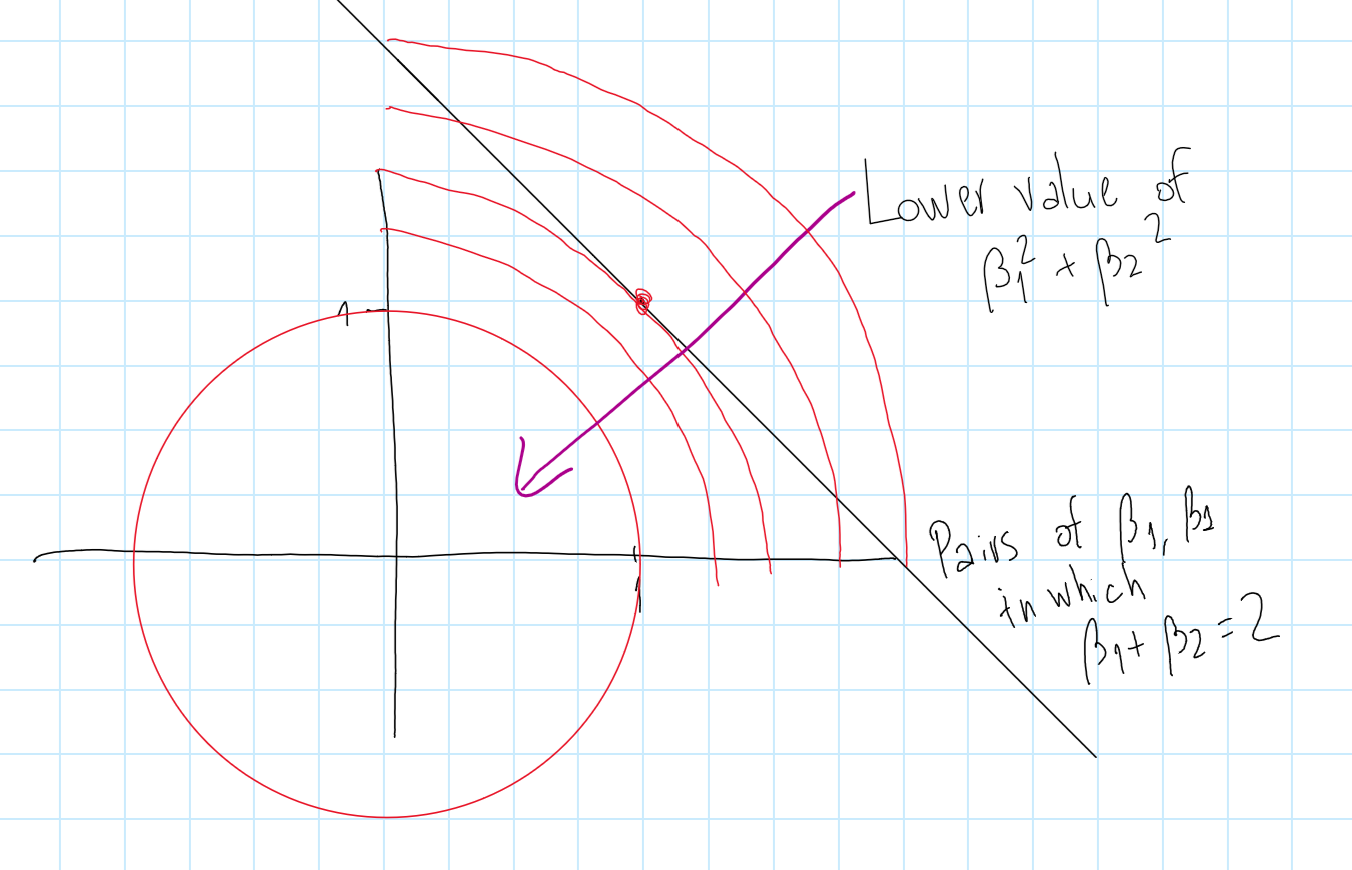 Lower value of
β₁² + β₂²
1
Pairs of β₁, β₂
in which
β₁ + β₂ = 2